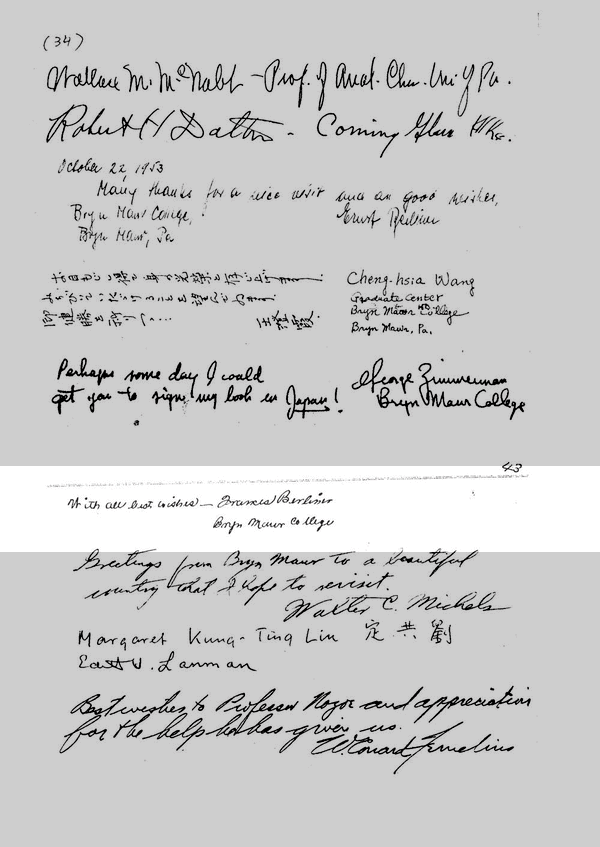 (34)
Wallace M. McNabb - Prof. of Anal. Chem. Uni. of Pa.
Robert H Dalton - Corning Glass Wks.
October 22, 1953
Many thanks for a nice visit and all good wishes,
Bryn Mawr College, Ernst Berliner
Bryn Mawr, Pa
Cheng-hsia Wang
Graduate Center
Bryn Mawr College
Bryn Mawr, Pa.
Perhaps some day I could
get you to sign my book in Japan!
George Zimmerman
Bryn Mawr College
43
With all best wishes - Frances Berliner
Bryn Mawr College
Greetings from Bryn Mawr to a beautiful
country that I hope to revisit.
Walter C. Michels
Margaret Kung-Ting Liu 定共劉
Lanman
Best wishes to Professor Nozoe and appreciation
for the help he has given us.
W. Conard Fernelius